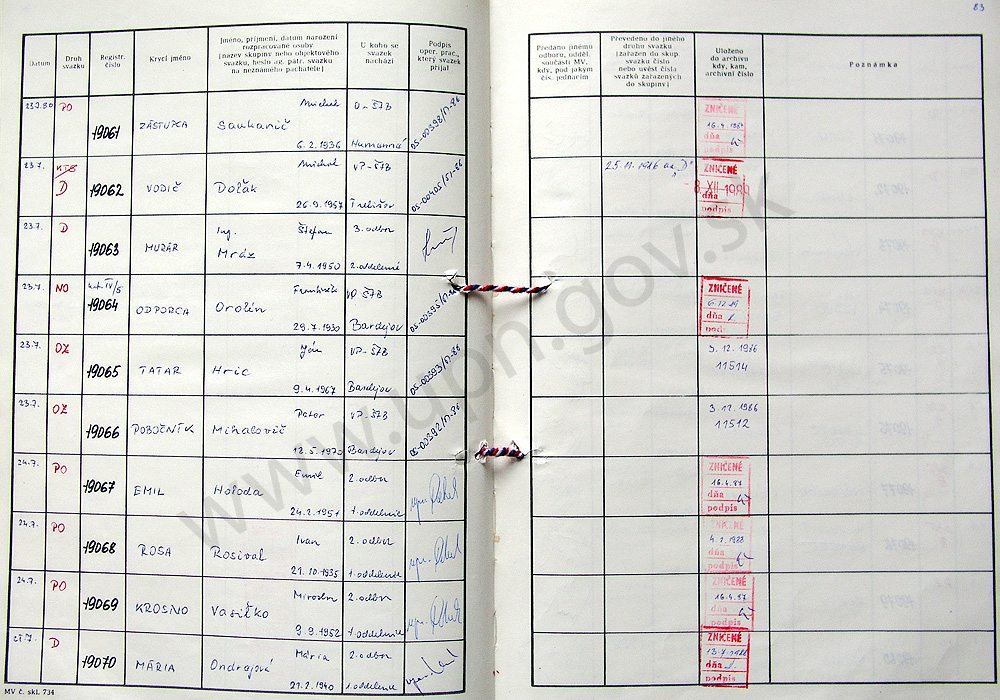 83
Datum
Druh svazku
Registr. číslo
Krycí jméno
Jméno, příjmení, datum narození
rozpracované osoby
(název skupiny nebo objektového
svazku, heslo ag. pátr. svazku
na neznámého pachatele)
U koho se
svazek
nachází
Podpis
oper. prac.,
který svazek
přijal
Předáno jinému
odboru, odděl.
součásti MV,
kdy, pod jakým
čís. jednacím
Převedeno do jiného
druhu svazku
(zařazen do skup.
svazku číslo
nebo uvést čísla
svazků zařazených
do skupiny)
Uloženo
do archivu
kdy, kam,
archivní číslo
Poznámka
23.7.86 PO 19061 ZÁSTUPCA Michal O-ŠTB
Saukanič
6.2.1936 Humenné OS-00398/ST-86
ZNIČENÉ
dňa
podpis
23.7. KTS D 19062 VODIČ Michal VP-ŠTB
Doľák
26.9.1957 Trebišov OS-00405/ST-86
25.11.1986 na „D"
ZNIČENÉ
-8-XII-1989
dňa
podpis
23.7. D 19063 MURÁR Ing. Štefan 3. odbor
Mráz
7.4.1950 2. oddelenie
23.7. NO kat. IV/5 19064 ODPORCA František VP ŠTB
Orolín
29.7.1930 Bardejov
ZNIČENÉ
dňa
23.7. OZ 19065 TATAR Ján VP-ŠTB
Hric
9.4.1967 Bardejov OS-00393/ST-86
3.12.1986
11514
23.7. OZ 19066 POBOČNÍK Peter VP-ŠTB
Mihalovič
12.5.1970 Bardejov OS-00392/ST-86
3.12.1986
11512
24.7. PO 19067 EMIL Emil 2. odbor
Holoda
24.2.1951 1. oddelenie
ZNIČENÉ
16.4.87
dňa
podpis
24.7. PO 19068 ROSA Ivan 2. odbor
Rosival
21.10.1935 1. oddelenie
4.1.1988
dňa
podpis
24.7. PO 19069 KROSNO Miroslav 2. odbor
Vasiľko
9.9.1952 1. oddelenie
ZNIČENÉ
16.4.87
dňa
podpis
D 19070 MÁRIA Mária 2. odbor
Ondrajová
21.2.1940 1. oddelenie
ZNIČENÉ
dňa
podpis
MV č. skl. 734
www.upn.gov.sk